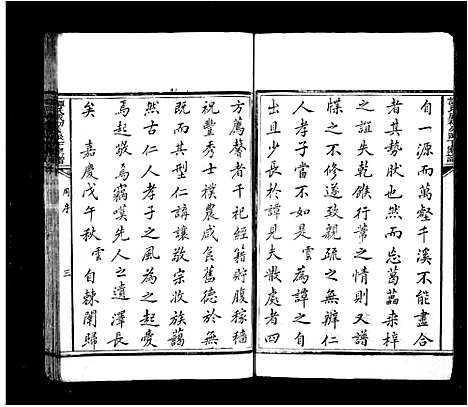 自一源而萬壑千溪不能盡合
者其勢狀也然而忘葛藟桑梓
之誼失乾餱行葦之情則又譜
牒之不修遂致親疏之無辨仁
人孝子當不如是雲為譚之自
出且少長於譚見夫散處者四
方薦馨者千祀經籍貯腹稼穡
祝豐秀士樸農咸食舊德於無
既而其型仁講讓敬宗收族藹
然古仁人孝子之風為之起愛
焉起敬焉竊嘆先人之遺澤長
矣 嘉慶戊午秋 雲自棘闈歸
周序
三